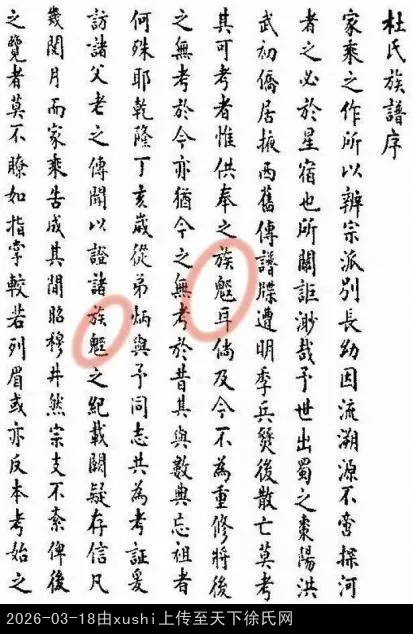 杜氏族譜序
家乘之作所以辨宗派別長幼因流溯源不啻探河
者之必於星宿也所關詎渺哉予世出蜀之棗陽洪
武初僑居掖西舊傳譜牒遭明季兵燹後散亡莫考
其可考者惟供奉之族軀耳倘及今不為重修將後
之無考於今亦猶今之無考於昔其與數典忘祖者
何殊耶乾隆丁亥歲從弟炳與予同志共為考証爰
訪諸父老之傳聞以證諸族軀之紀載闕疑存信凡
幾閱月而家乘告成其間昭穆井然宗支不紊俾後
之覽者莫不瞭如指掌較若列眉或亦反本考始之
2026-03-18由xushi上传至天下徐氏网